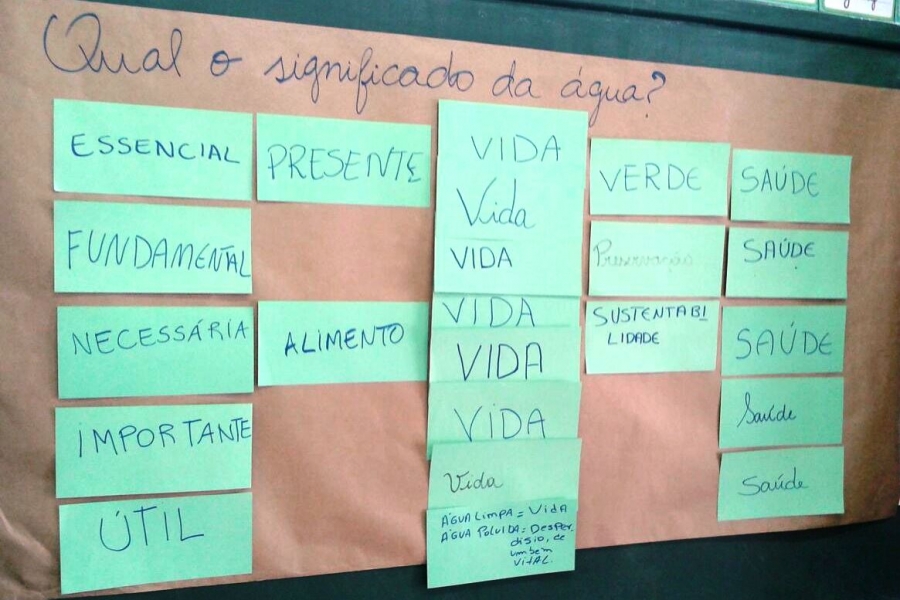 Qual o significado da água?
ESSENCIAL
FUNDAMENTAL
NECESSÁRIA
IMPORTANTE
ÚTIL
PRESENTE
ALIMENTO
VIDA
Vida
VIDA
VIDA
VIDA
VIDA
Vida
ÁGUA LIMPA = VIDA
ÁGUA POLUIDA = DESPER
DISIO, DE
UM BEM
VITAL.
VERDE
Preservação
SUSTENTABI
LIDADE
SAÚDE
SAÚDE
SAÚDE
Saúde
Saúde